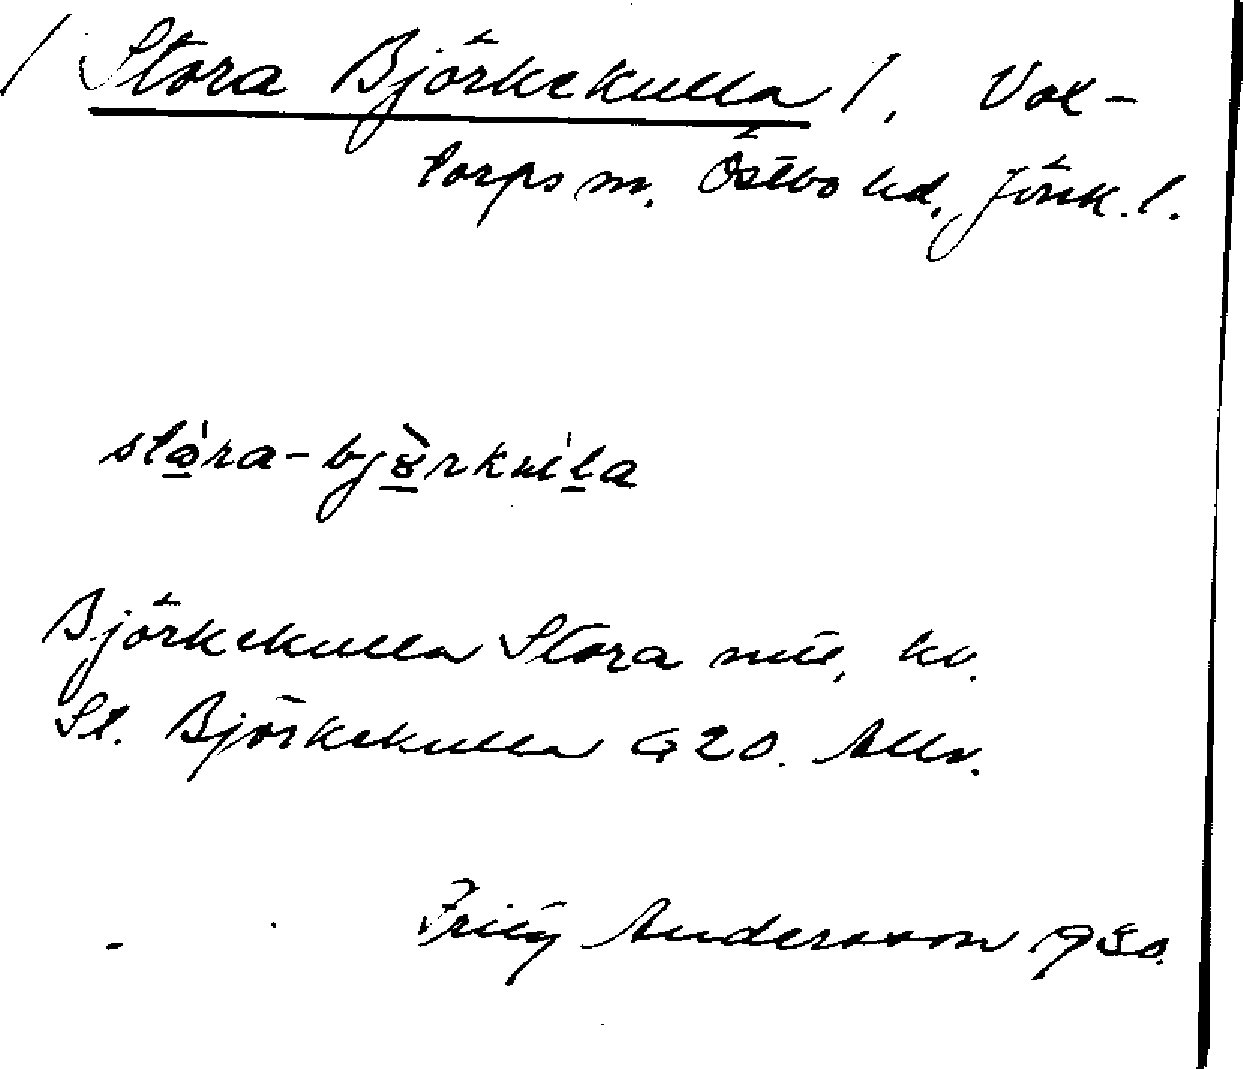 / Stora Björkekulla /, Vol-
torps sn. Östbo hd, Jönk. l.
stora-bjòrkula
Björkekulla Stora mtl, kv.
St. Björkekulla G20. Allm.
Fritz Andersson 1930.